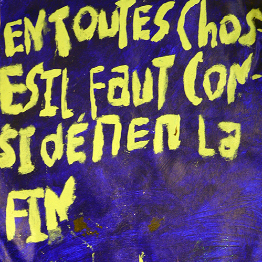 EN TOUTES Chos
ES IL FaUT CON-
SIDÉRER La
FIN